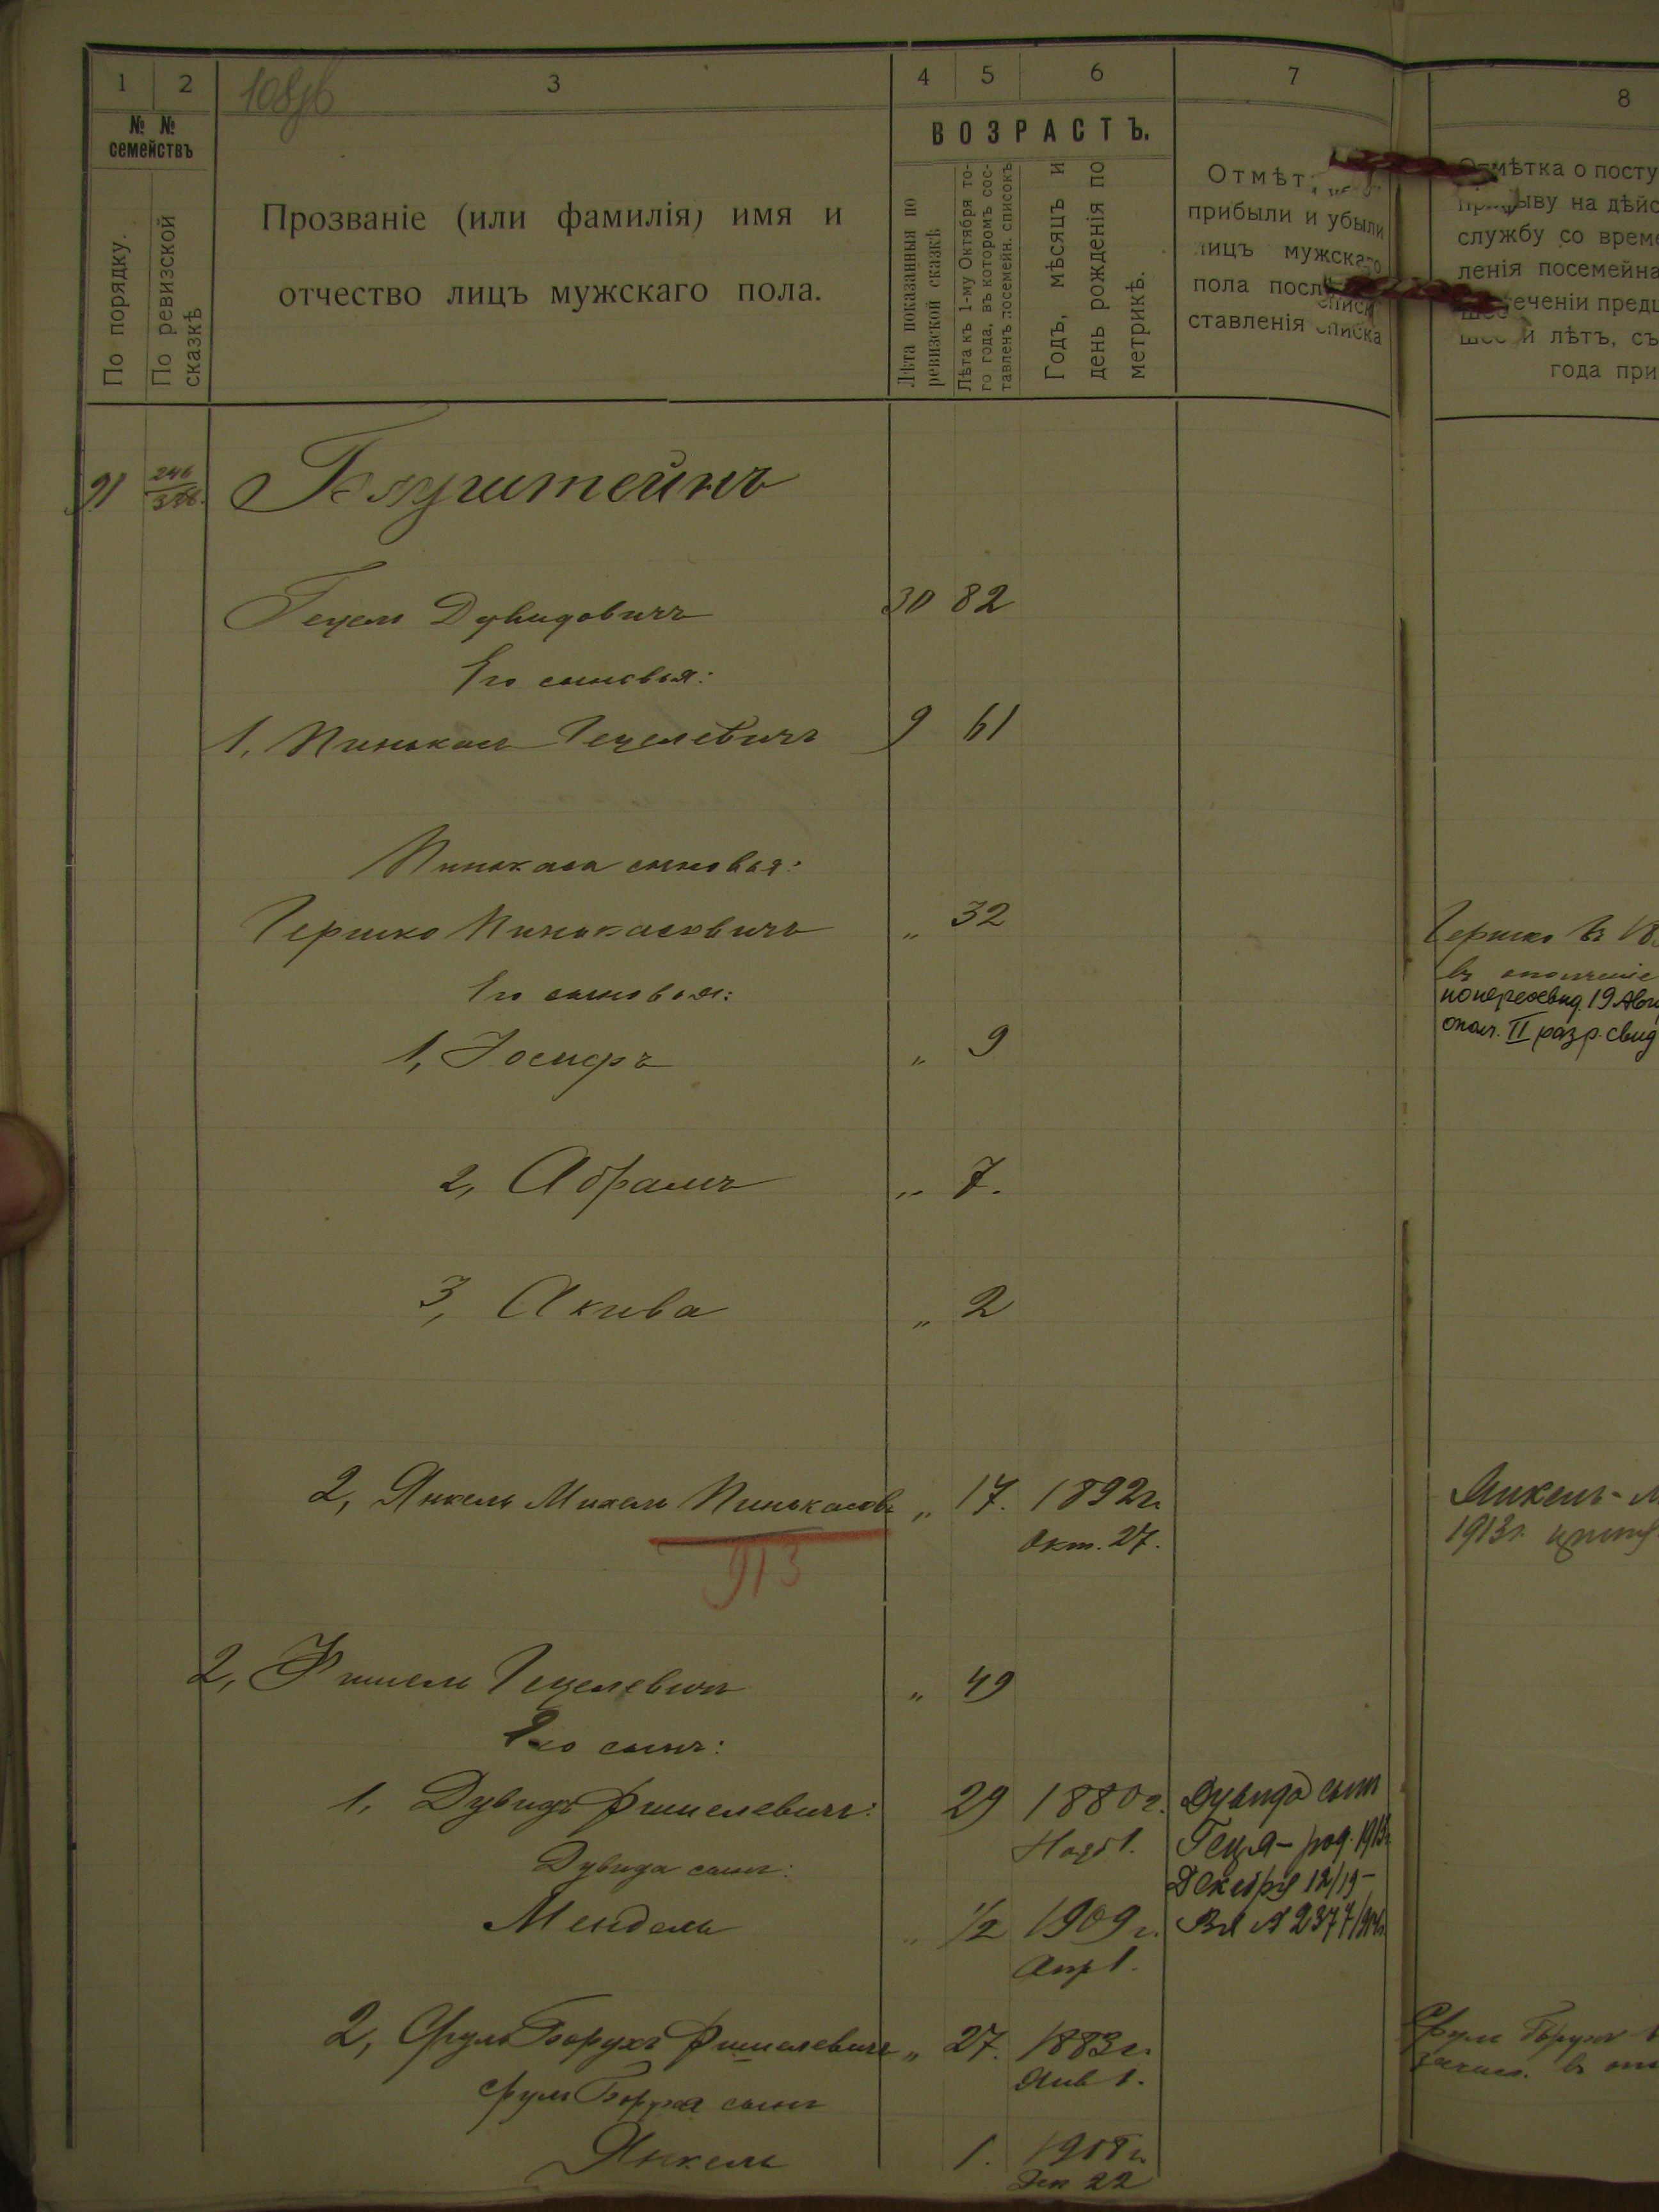 1 2 3 4 5 6 7 8
№ №
семействъ
По порядку.
По ревизской
сказкѣ
Прозваніе (или фамилія) имя и
отчество лицъ мужскаго пола.
ВОЗРАСТЪ.
Лѣта показанныя по
ревизской сказкѣ
Лѣта къ 1-му Октября то-
го года, въ которомъ сос-
тавленъ посемейн. списокъ
Годъ, мѣсяцъ и
день рожденія по
метрикѣ.
Отмѣт
прибыли и убыли
лицъ мужскаго
пола посл
ставленія списка
Отмѣтка о посту
ыву на дѣйс
службу со време
ленія посемейна
еченіи предш
и лѣтъ, съ
года при
91
246
Гецель Дувидовичъ 30 82
Его сыновья:
1, Пинькасъ Гецелевичъ 9 61
Пинькаса сыновья:
Гершко Пинькасовичъ „ 32
Гершко въ 18
въ ополченіе
по переосвид. 19 Авг
опол. II разр. свид
Его сыновья:
1, Іосифъ „ 9
2, Абрамъ „ 7.
3, Акива „ 2
2, Янкель Михель Пинькасовъ „ 17. 1892 г.
Окт. 27.
913
Янкель-М
1913 г.
2, Фишель Гецелевичъ „ 49
Его сынъ:
1, Дувидъ Фишелевичъ: 29 1880 г.
Дувида сынъ:
Мендель „ 1/2 1909 г.
Апр 1.
Дувида сынъ
Геця - род. 1913
Декабря 12/19 -
2377
2, Сруль Борухъ Фишелевичъ „ 27. 1883 г.
Янв 1.
Сруль Борухъ в
зачис. въ опо
Сруль Боруха сынъ
Янкель 1. 1908 г.
Дек 22